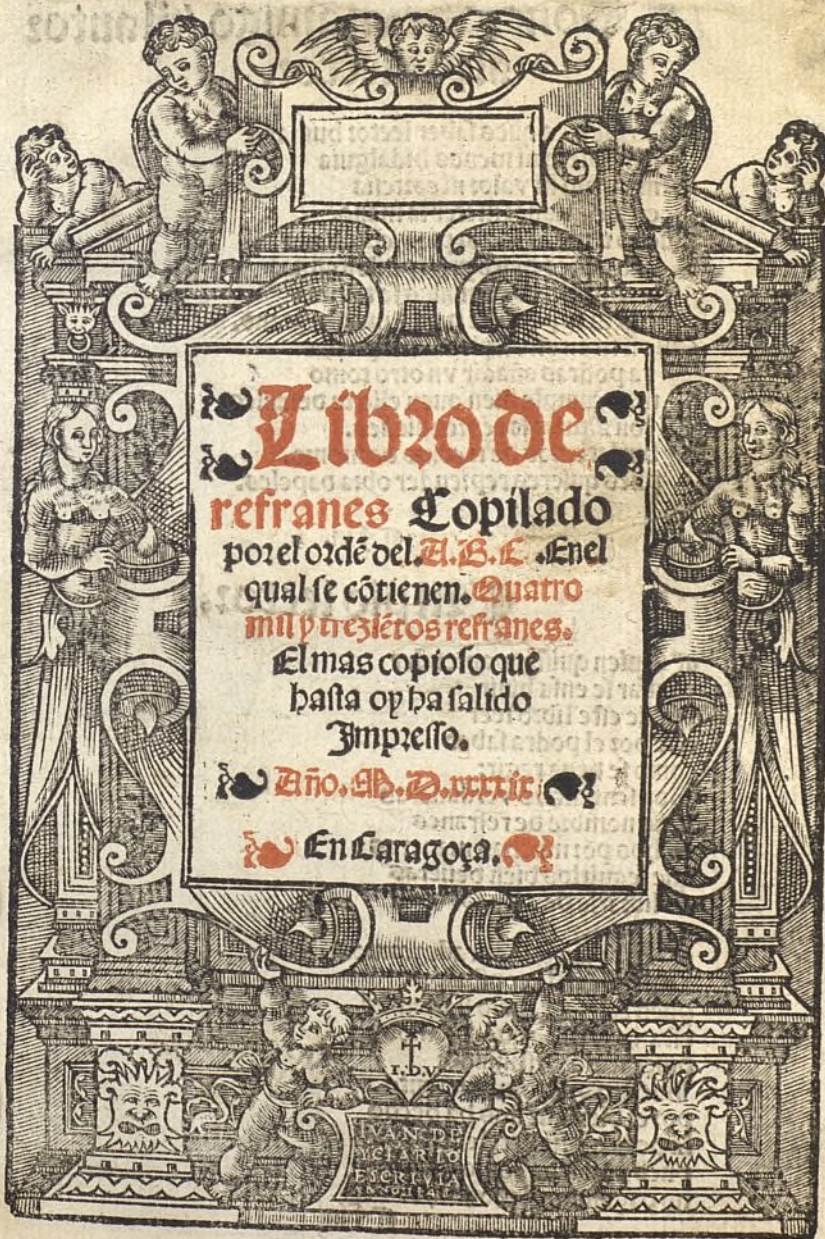 Libro de
refranes Copilado
por el ordē del. A.B.C. En el
qual se cōtienen. Quatro
mil y treziētos refranes.
El mas copioso que
hasta oy ha salido
Impresso.
Año. M.D.xxxxix
En Caragoça.
I.D.V
IVAN DE
YCIAR LO
ESCRIVIA